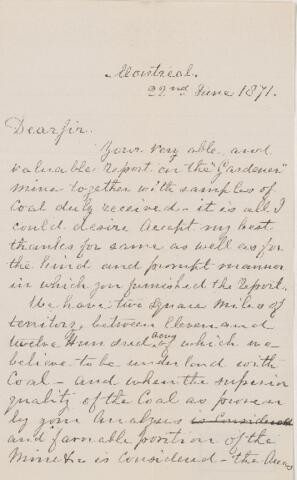 Montreal.
22nd June 1871.
Dear Sir.
Your very able and
valuable report on the "Gardener"
mine together with samples of
Coal duly received - it is all I
could desire accept my best
thanks for same as well as for
the kind and prompt manner
in which you furnished the Report.
We have two square miles of
territory, between Eleven and
twelve Hundred acres of which we
believe to be underlaid with
Coal - and when the superior
quality of the Coal as proven
by your Analyses is Considered
and favorable position of the
Mine &c is considered - the